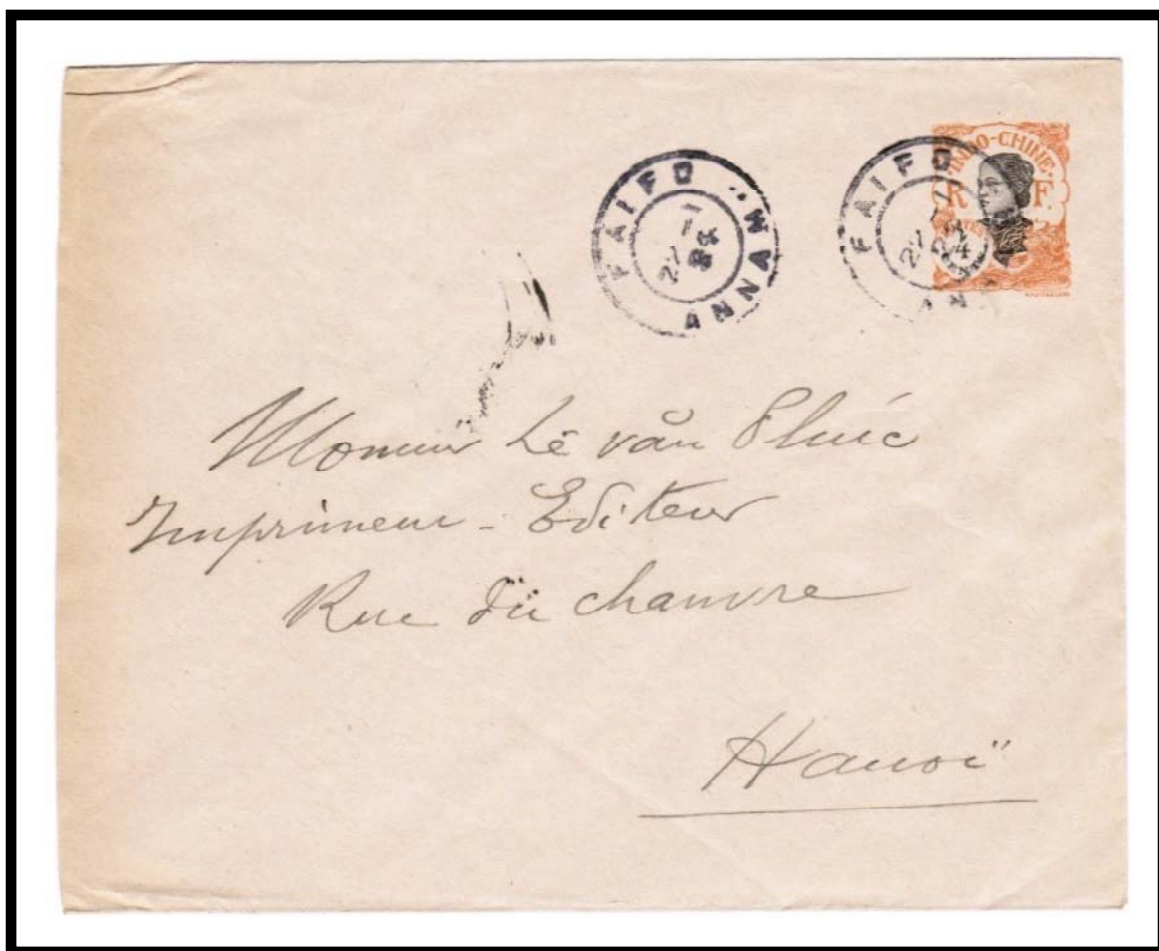 FAIFO
ANNAM
27 -1
24
FAIFO
27 -1
24
AN
INDO-CHINE
R F
Monsieur Lê văn Phúc
Imprimeur - Editeur
Rue du chanvre
Hanoï